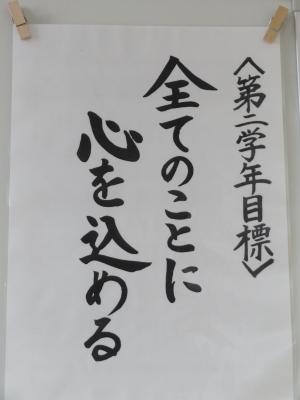 〈第二学年目標〉
全てのことに
心を込める